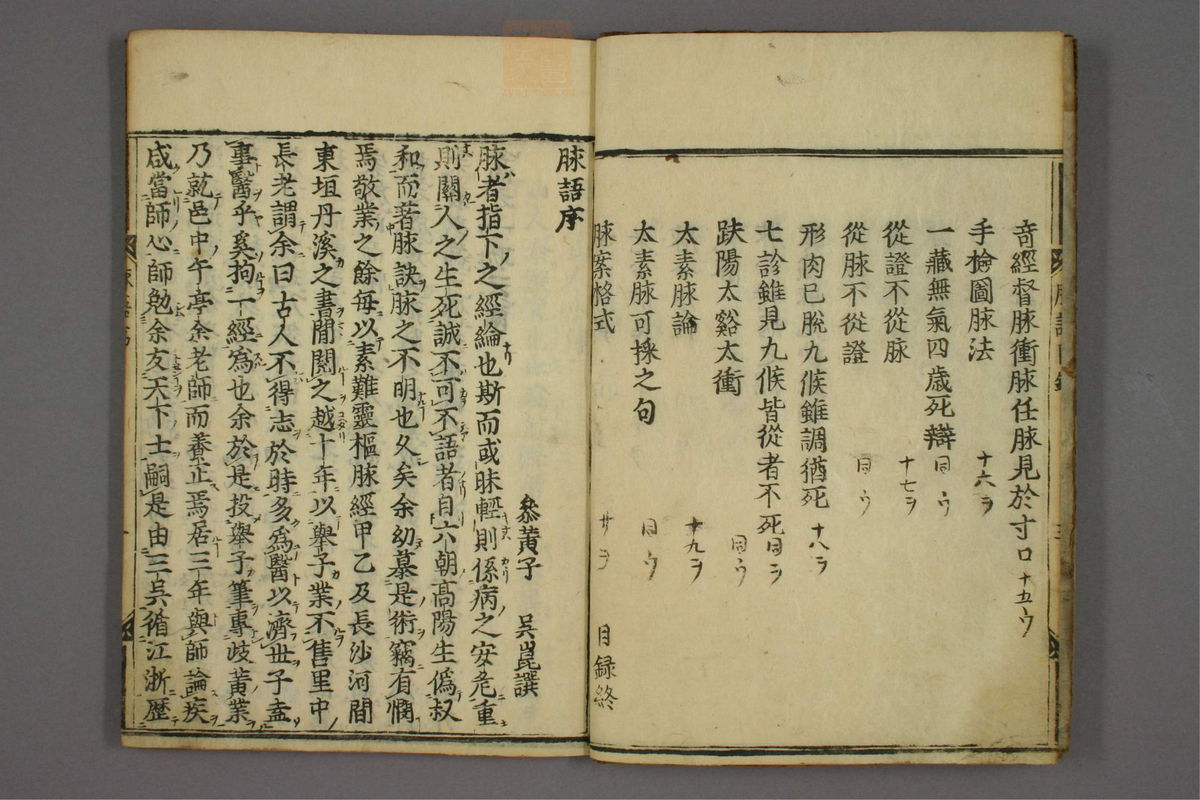 奇經督脉衝脉任脉見於寸口 十五ウ
手撿圖脉法 十六ヲ
一藏無氣四歲死辯 同ウ
從證不從脉 十七ヲ
從脉不從證 同ウ
形肉已脫九候雖調猶死 十八ヲ
七診雖見九候皆從者不死 同ヲ
趺陽太谿太衝 同ウ
太素脉論 十九ヲ
太素脉可採之句 同ウ
脉案格式 廿ヲ 目録終
脉語序
叅黄子 吳崑譔
脉者指下之經綸也斯而或昧輕則係病之安危重
則關人之生死誠不可不語者自六朝髙陽生僞叔
和而著脉訣脉之不明也久矣余幼慕是術竊有憫
焉敬業之餘每以素難靈樞脉經甲乙及長沙河間
東垣丹溪之書閒閱之越十年以舉子業不售里中
長老謂余曰古人不得志於時多爲醫以濟世子盍
事醫乎奚拘一經爲也余於是投舉子筆專歧黄業
乃就邑中午亭余老師而養正焉居三年與師論疾
咸當師心師勉余友天下士嗣是由三吳循江浙歷